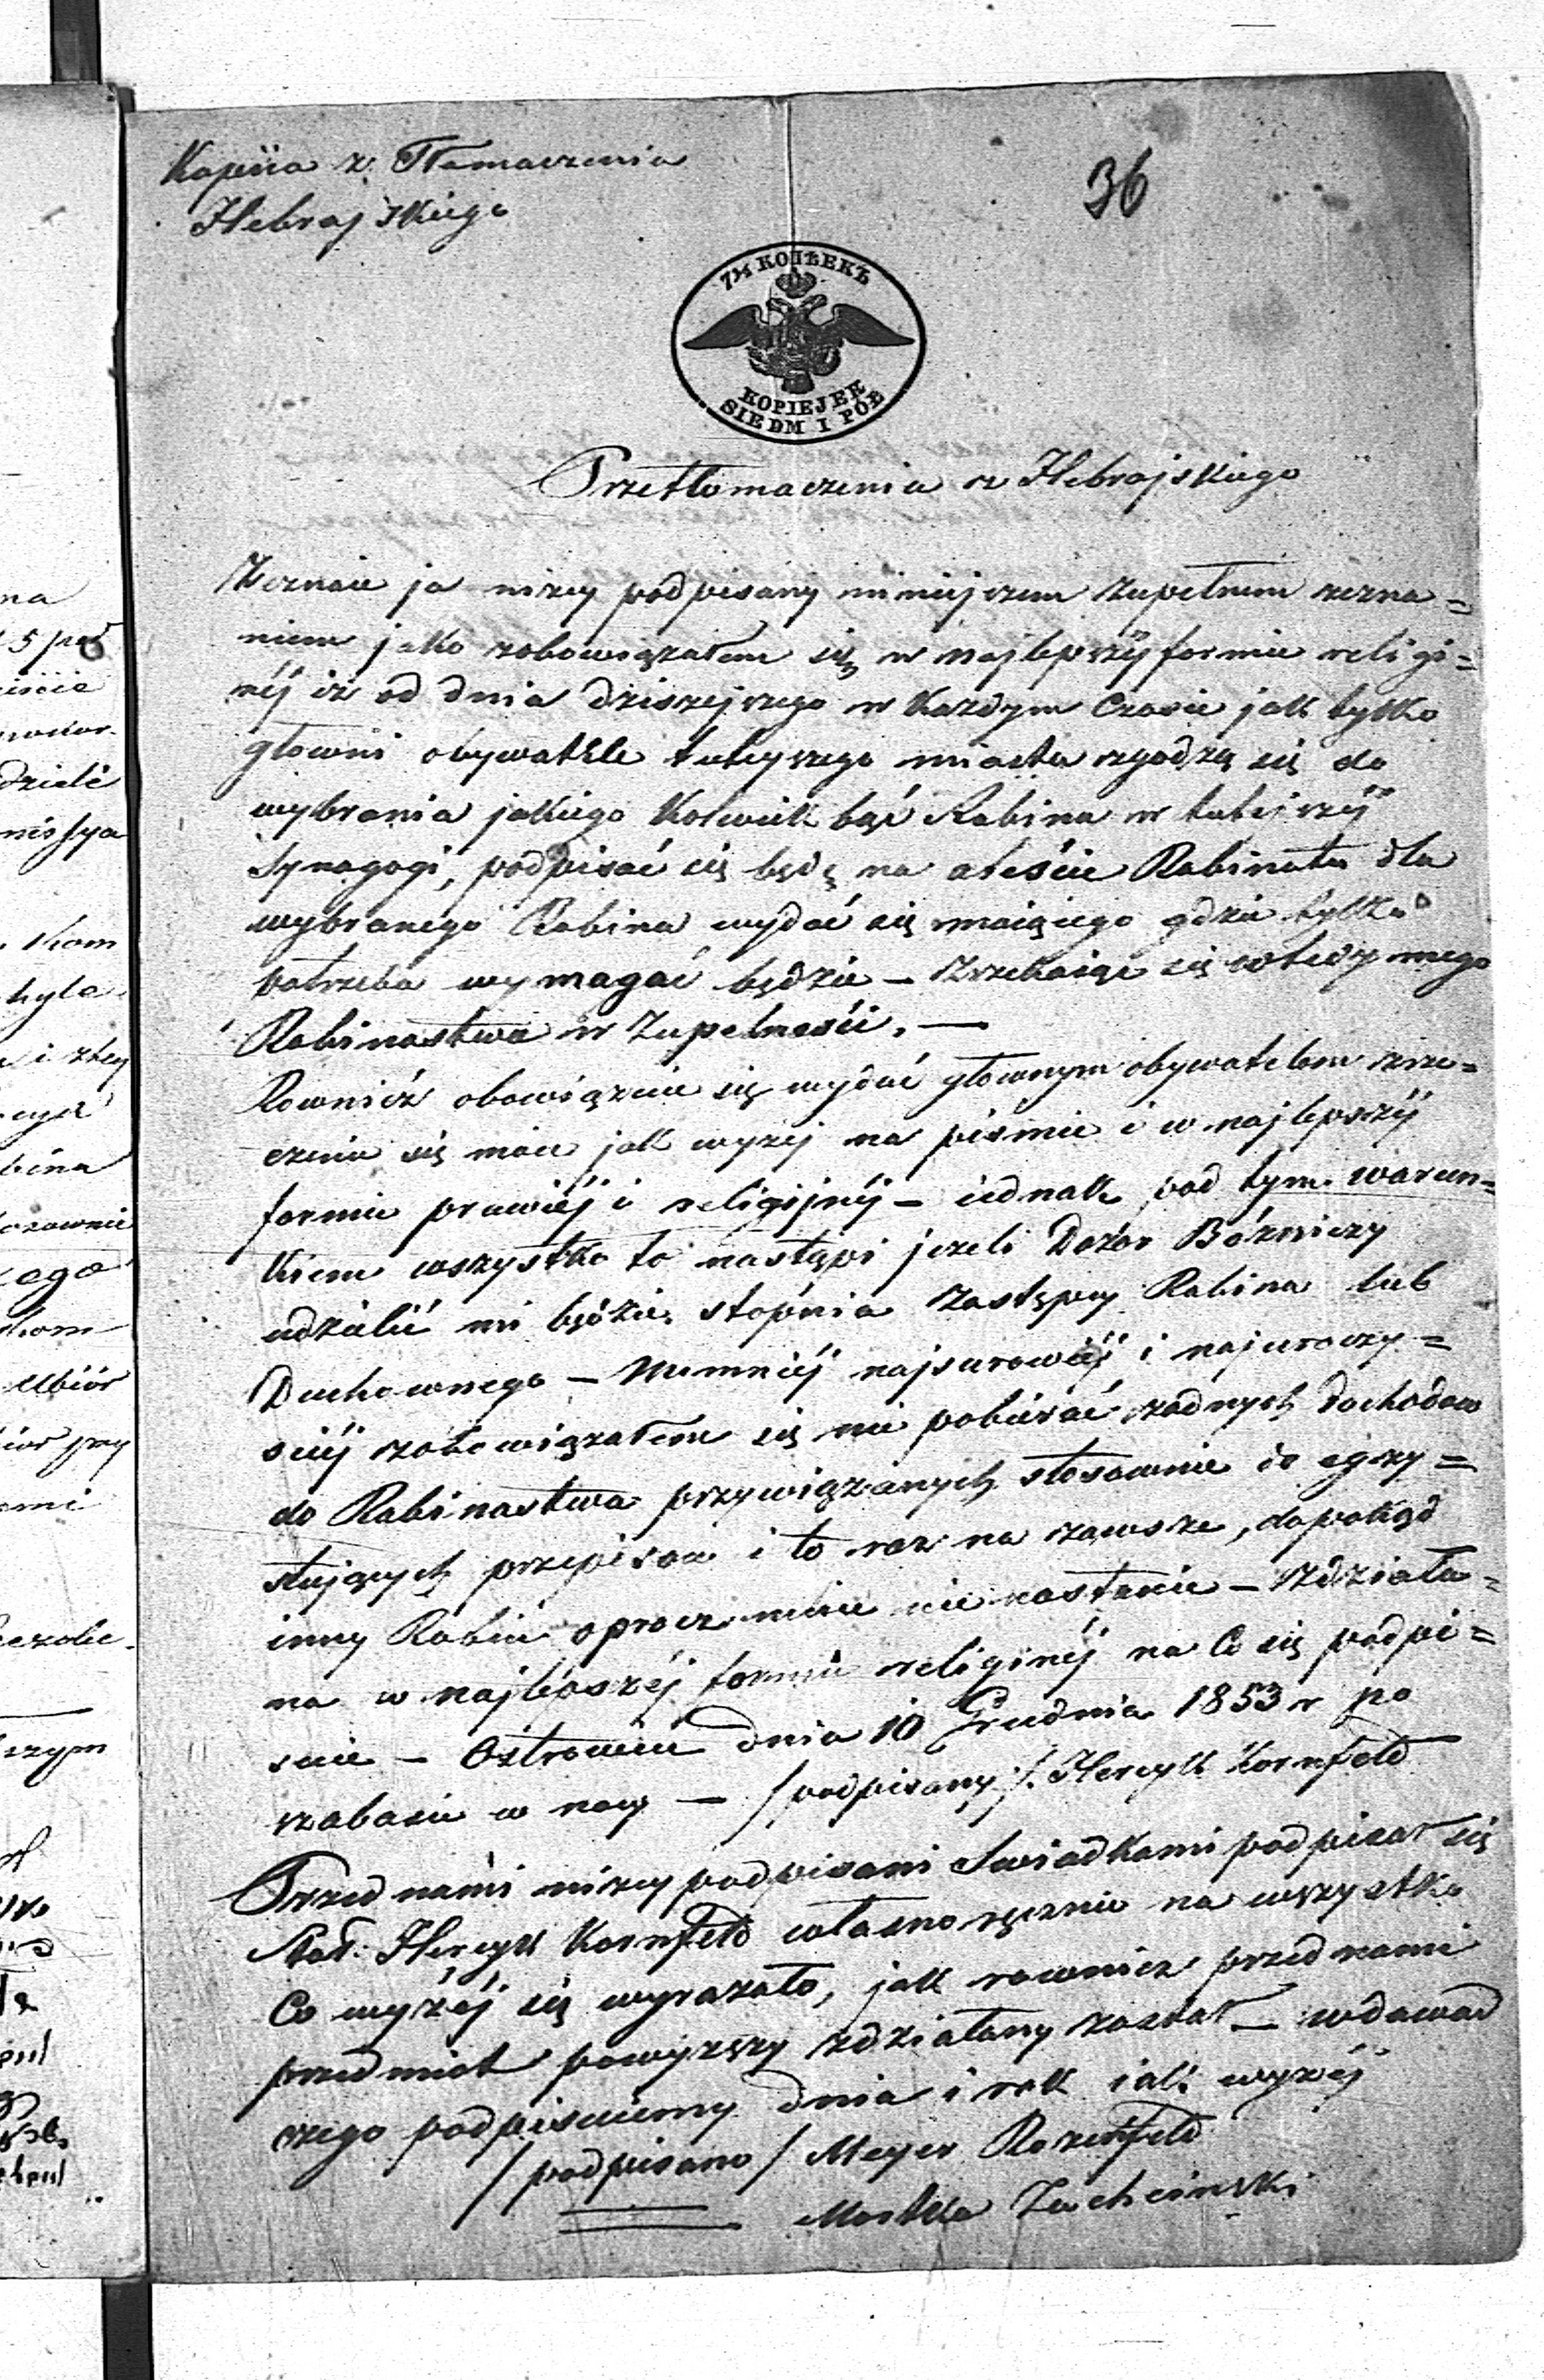 Kopiia z Tłomaczenia
Hebrajskiego
36
7½ КОПѢЕКЪ
KOPIEJEK
SIEDM I PÓŁ
Przetłomaczenia z Hebrajskiego
Zeznaie ja nizey podpisany niniejszem zupełnem zezna=
niem jako zobowiązałem się w najlepszéj formie religi=
néj iż od dnia dziszejszego w Kazdym Czasie jak tylko
głowni obywatele tuteyszego miasta zgodzą się do
wybrania jakiego Kolwiek bąć Rabina w tutejszéj
Synagogi, podpisać się będę na ateście Rabinatu dla
wybranego Rabina wydać się maiąiego gdzie tylko
potrzeba wymagać będzie – Zrzekaiąc się wtedy mego
Rabinastwa w Zupełności. —
Rownież obowiązuie się wydać głownym obywatelom zrze=
czenie się moie jak wyzej na piśmie i w najlepszéj
formie prawnéj i religijnéj – iednak pod tym warun=
kiem wszystko to nastąpi jezeli Dozór Bóżniczy
udzielić mi będzie stopnia Zastępcy Rabina lub
Duchownego – Niemniéj najsurowiéj i najuroczy=
sciéj zobowiązałem się nie pobierać żadnych dochodow
do Rabinastwa przywiązanych stosownie do egzy=
stujących przepisow i to raz na zawsze, dopokąd
inny Rabin oprocz mnie nie nastanie – Zdziała=
na w najlepszéj formie religinéj na Co się podpi=
suie – Ostrowiu dnia 10 Grudnia 1853 r po
szabasie w nocy — /podpisany/ Hercyk Kornfeld
Przed nami nizey podpisani Swiadkami podpisał się
Hercyk Kornfeld własnoręcznie na wszystko
Co wyżéj się wyrazało, jak rownież przed nami
przedmiot powyzszy zdziałany został – wdowod
czego podpisuiemy dnia i rok iak wyzéj
/podpisano/ Meyer Rozenfeld
Moszka Zuchcinski